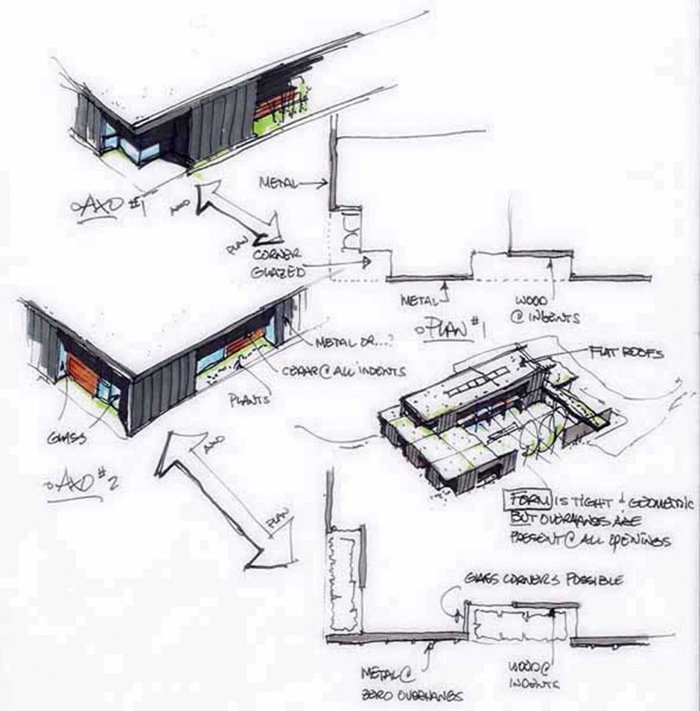 METAL
AXO #1
AXO
PLAN
CORNER
GLAZED
METAL
WOOD
@ INDENTS
PLAN #1
METAL OR...?
CEDAR @ ALL INDENTS
PLANTS
GLASS
AXO #2
AXO
PLAN
FLAT ROOFS
FORM IS TIGHT + GEOMETRIC
BUT OVERHANGS ARE
PRESENT @ ALL OPENINGS
GLASS CORNERS POSSIBLE
METAL @
ZERO OVERHANGS
WOOD @
INDENTS